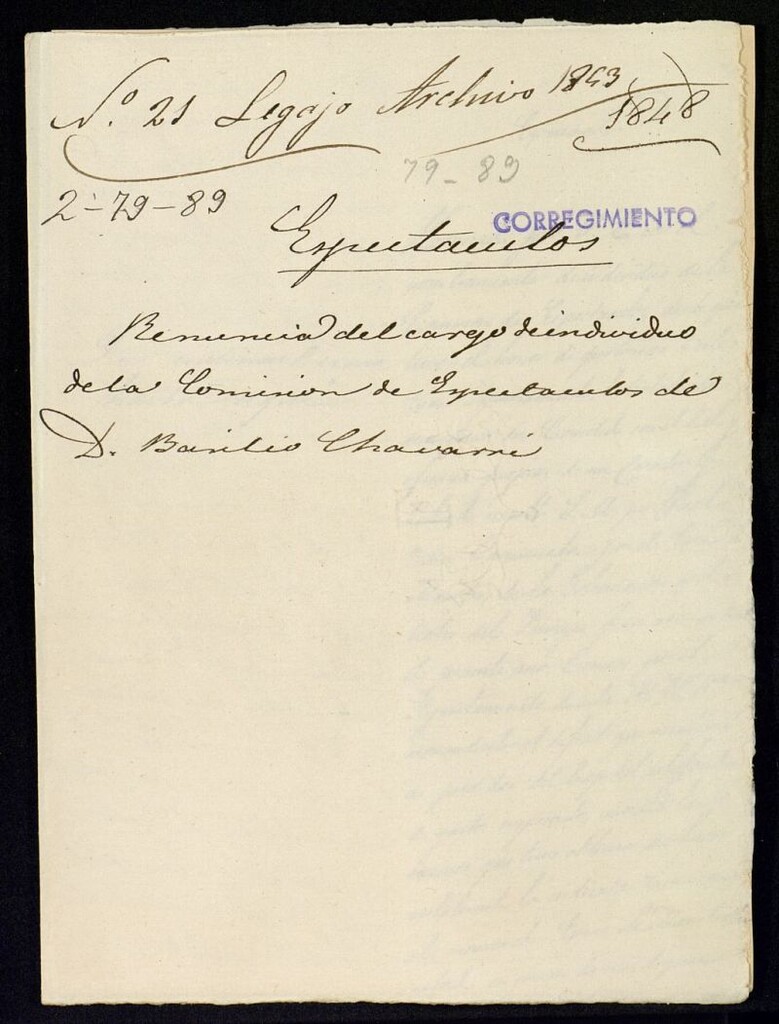 N.º 21 Legajo Archivo 1843
1848
79-89
2-79-89
CORREGIMIENTO
Espectaculos
Renuncia del cargo de individuo
de la Comision de Espectaculos de
D. Basilio Chavarri